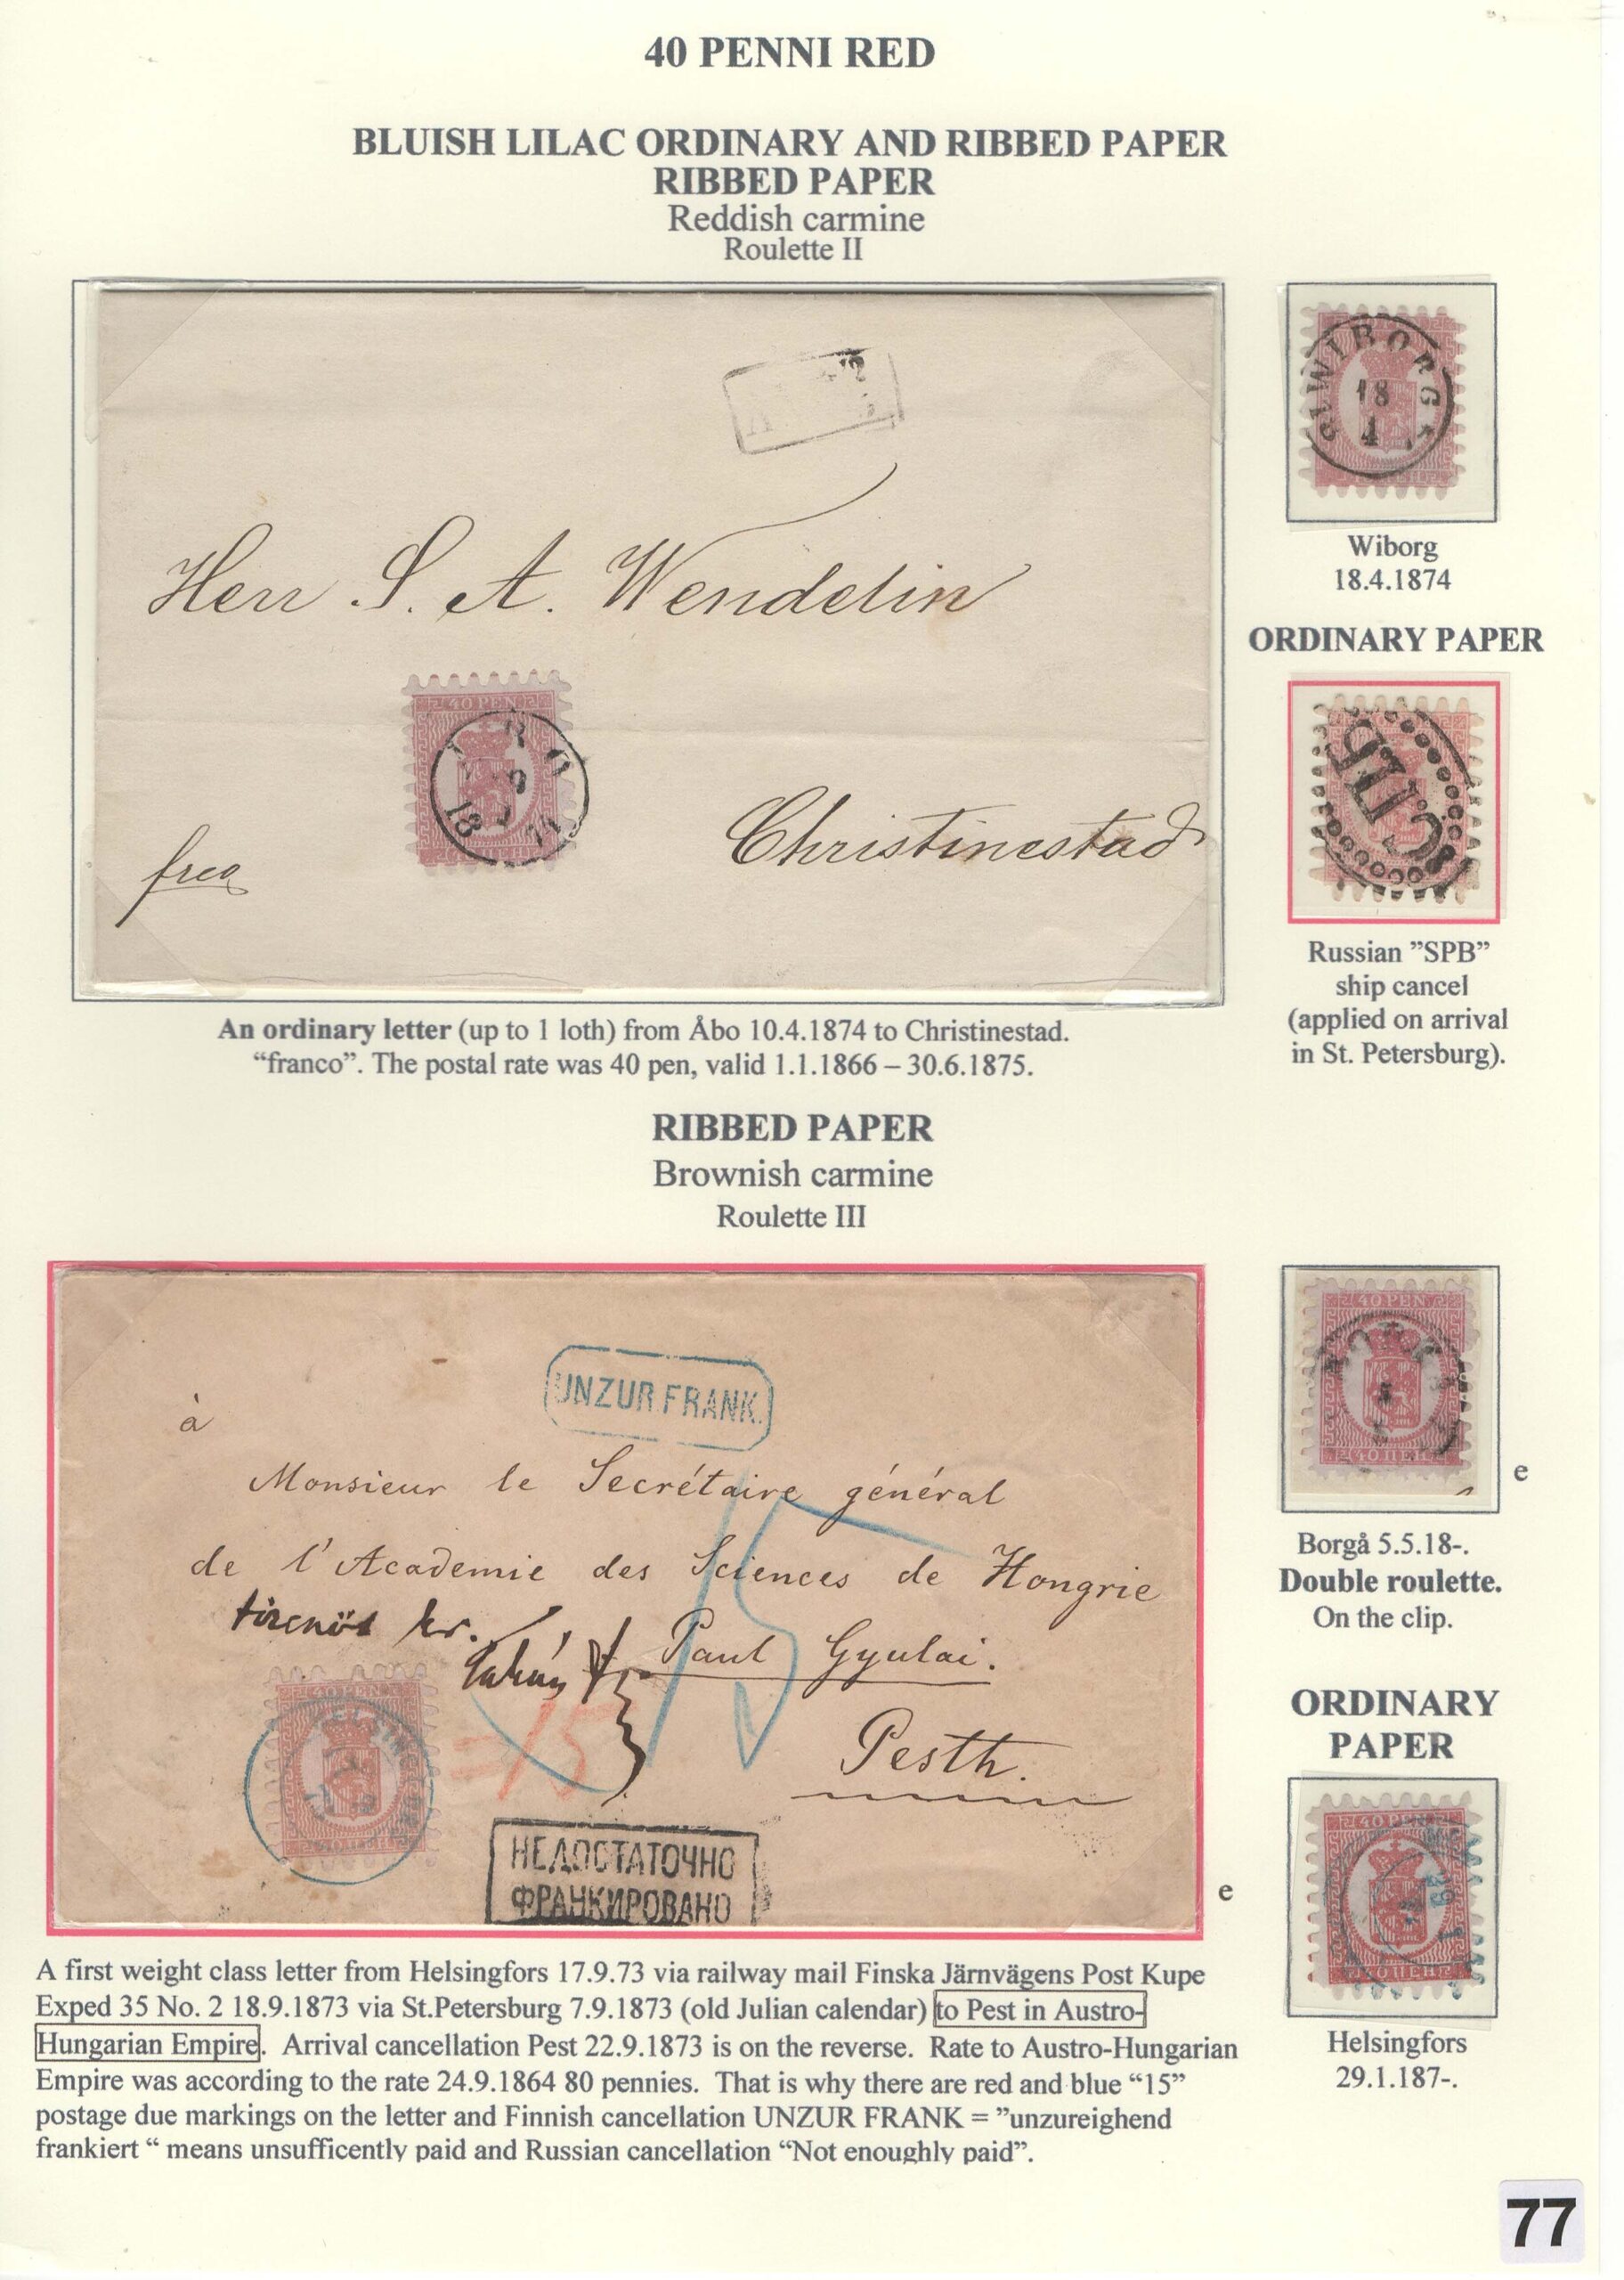 40 PENNI RED
BLUISH LILAC ORDINARY AND RIBBED PAPER
RIBBED PAPER
Reddish carmine
Roulette II
Herr S. A. Wendelin
40 PEN
18
frco
Christinestad
WIBORG
18
4
Wiborg
18.4.1874
ORDINARY PAPER
СПБ
Russian ”SPB”
ship cancel
(applied on arrival
in St. Petersburg).
An ordinary letter (up to 1 loth) from Åbo 10.4.1874 to Christinestad.
“franco”. The postal rate was 40 pen, valid 1.1.1866 – 30.6.1875.
RIBBED PAPER
Brownish carmine
Roulette III
UNZUR.FRANK.
à
Monsieur le Secrétaire général
de l'Academie des Sciences de Hongrie
tizenöt kr.
Paul Gyulai.
15
=15
Pesth.
40 PEN
НЕДОСТАТОЧНО
ФРАНКИРОВАНО
e
40 PEN
40 ПЕН
e
Borgå 5.5.18-.
Double roulette.
On the clip.
ORDINARY
PAPER
40 PEN
29
1
Helsingfors
29.1.187-.
A first weight class letter from Helsingfors 17.9.73 via railway mail Finska Järnvägens Post Kupe
Exped 35 No. 2 18.9.1873 via St.Petersburg 7.9.1873 (old Julian calendar) to Pest in Austro-
Hungarian Empire. Arrival cancellation Pest 22.9.1873 is on the reverse. Rate to Austro-Hungarian
Empire was according to the rate 24.9.1864 80 pennies. That is why there are red and blue “15”
postage due markings on the letter and Finnish cancellation UNZUR FRANK = ”unzureighend
frankiert “ means unsufficently paid and Russian cancellation “Not enoughly paid”.
77